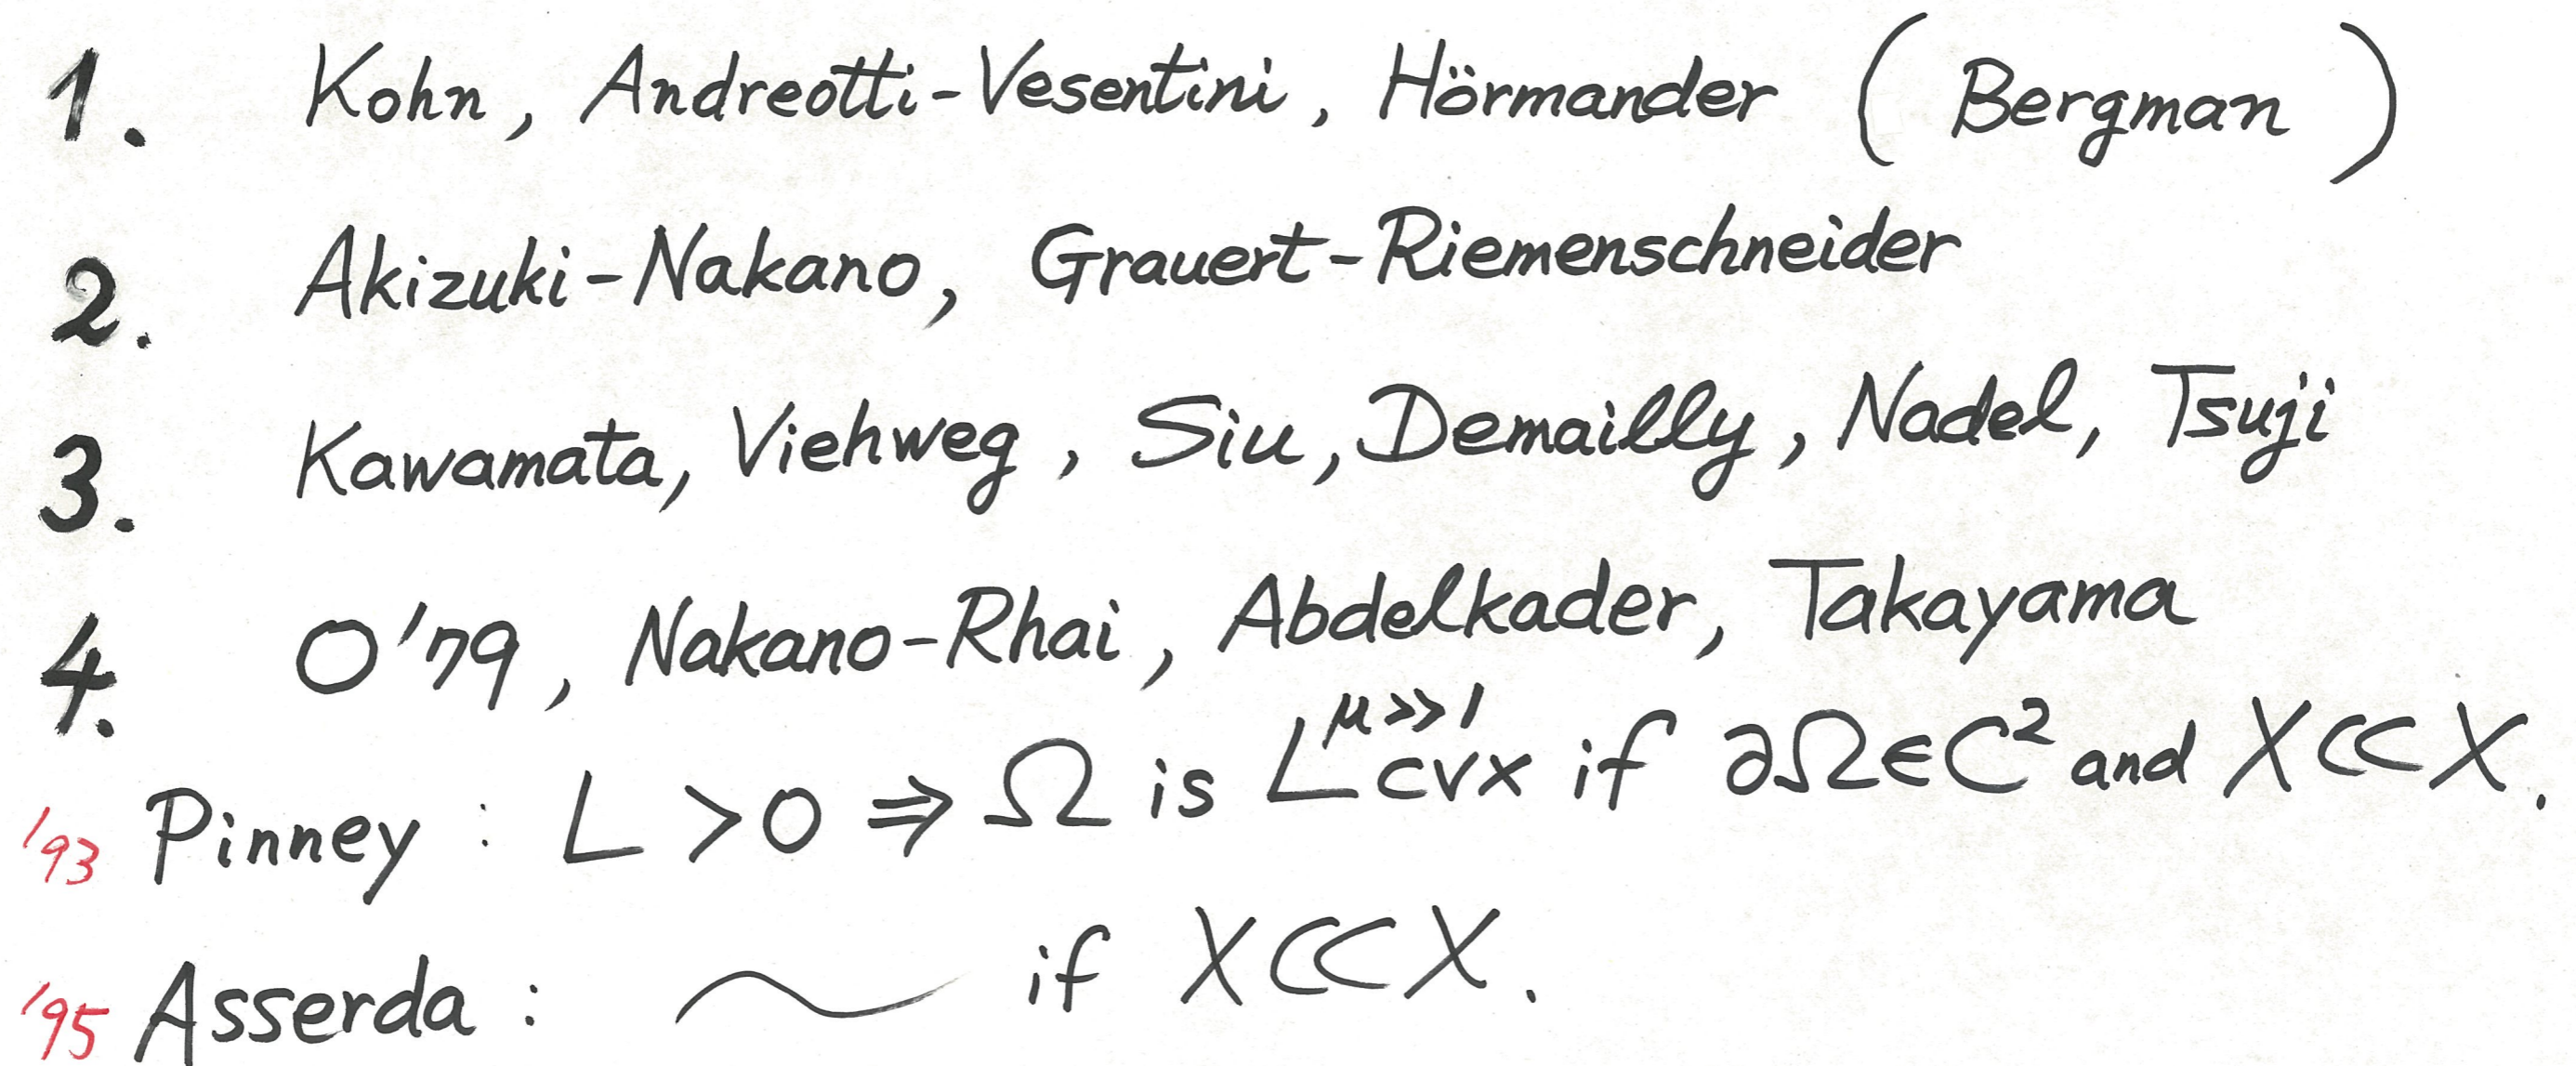 1. Kohn, Andreotti-Vesentini, Hörmander (Bergman)
2. Akizuki-Nakano, Grauert-Riemenschneider
3. Kawamata, Viehweg, Siu, Demailly, Nadel, Tsuji
4. O'79, Nakano-Rhai, Abdelkader, Takayama
'93 Pinney : L > 0 ⇒ Ω is L^{μ>>1} cvx if ∂Ω∈C² and X⊂⊂X.
'95 Asserda : ~ if X⊂⊂X.